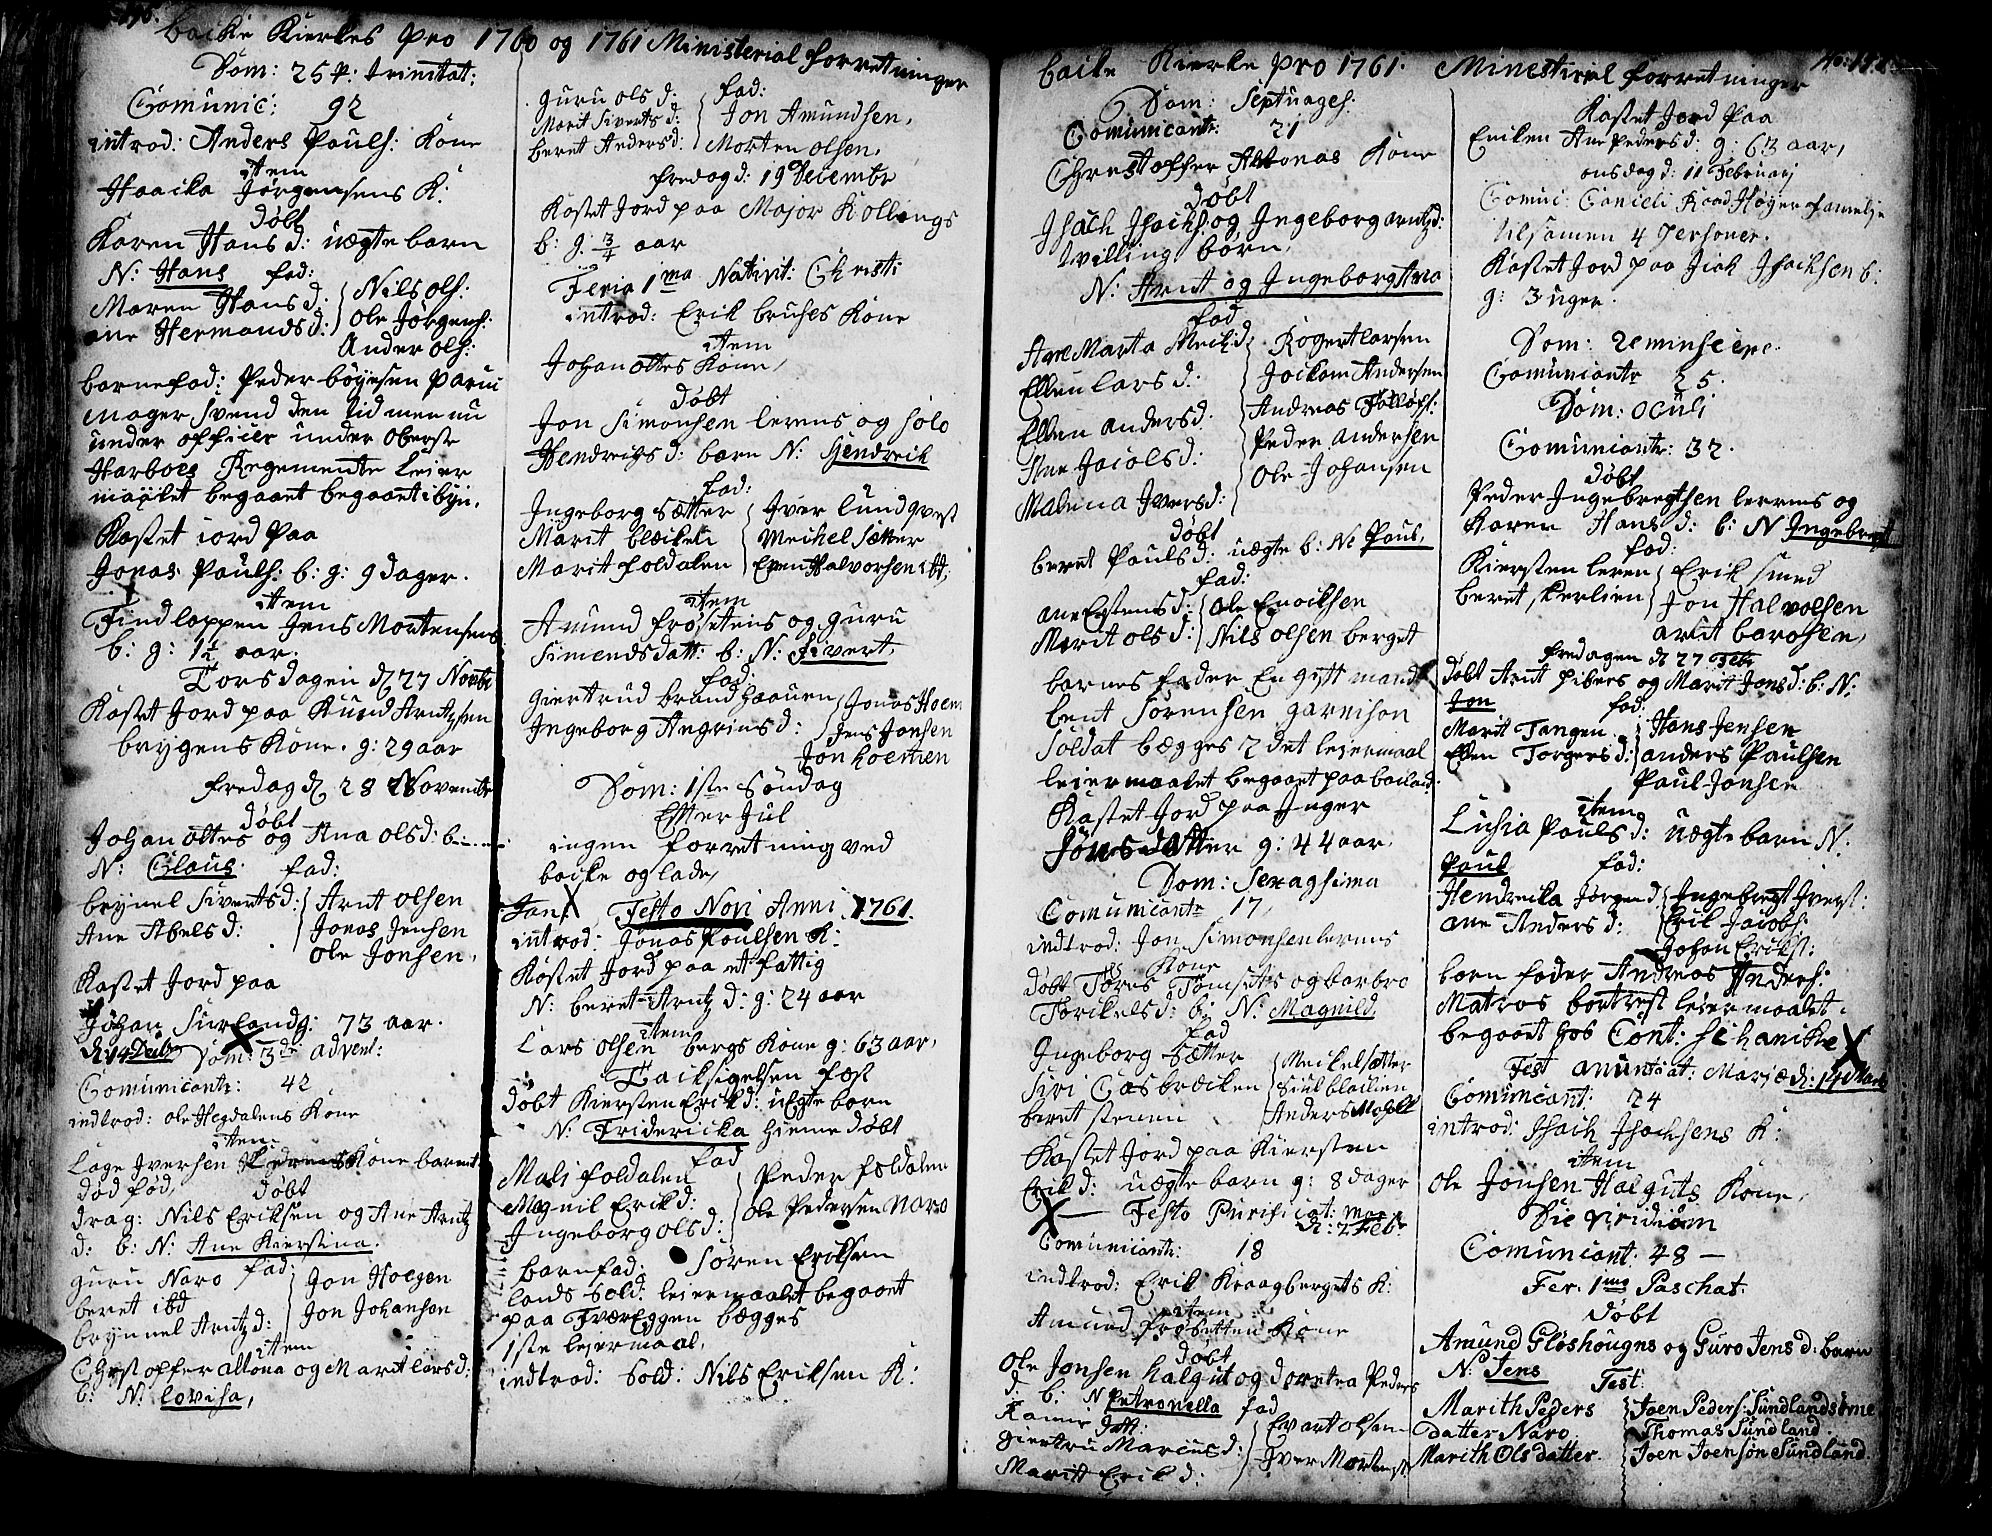 backe Kierkes pro 1760 og 1761 Ministerial forretninger
Dom: 25 p: trinitat:
Comunic: 92
introd: Anders Pouls: Kone
item
Haacka Jørgensens K:
døbt
Karen Hans d: uægte barn
N: Hans fad:
Maren Hans d: Nils ols:
ane Hermands d: Ole Jørgens:
Ander ols:
barnefad: Peder bøyesen paruc
mager svend den tid men nu
under officer under Oberst
Harboes Regemente Leier
maalet begaaet begaaet i byn.
Kastet iord paa
Jonas Pouls: b: g: 9 dager.
item
Find loppen Jens Mortensens
b: g: 1½ aar.
Torsdagen d 27 Novbr
Kastet Jord paa Knud Arntzsen
brygens Kone. g: 29 aar
fredag d 28 Novembr
døbt
Johan ottes og Ana ols d: b:
N: Claus. fad:
brynel Siverts d: Arnt olsen
Ane Abels d: Jonas Jensen
ole Jonsen,
Kastet Jord paa
Johan Surland g: 73 aar.
d: 14 Decbr Dom: 3de advent:
Comunicantr: 42
indtrod: ole Hegdalens Kone
item
Lage Iversen Kone barnet
død fød, døbt
drag: Nils Eriksen og Ane Arntz
d: b: N: Ane Kierstina.
fad:
guru Naro Jon Hoegen
beret ibd Jon Johansen
brynnel Arntz d:
item
Christopher altona og Marit lars d:
b: N: lovisa,
guru ols d: fad:
Marit Siverts d: Jon Amundsen,
beret Anders d: Morten olsen,
fredag d: 19 Decembr
Kastet Jord paa Major Kollings
b: g: ¾ aar
Feria 1ma Nativit: Christi
introd: Erik bruses Kone
item
Johan ottes Kone,
døbt
Jon Simonsen lerens og solo
Hendrichs d: barn N: Hendrich
fad:
Ingeborg sætter Iver lundqvest
Marit blækeli Meichel sætter
Marit foldalen Even Halvorsen ibd:
item
Amund frøsetens og guru
Simends datt: b: N: Sivert,
fad:
giertrud brandhaauen Jonas Hoem
Ingeborg Angrims d: Jens Jonsen
Jon hoemen
Dom: 1ste søndag
Efter Jul
ingen forretning ved
backe og lade,
Jan: Festo Novi Anni 1761.
introd: Jonas Poulsen K:
Kastet Jord paa et fattig
N: beret Arntz d: g: 24 aar
item
Lars olsen bergs Kone g: 63 aar,
Tacksigelsen fæst
døbt Kiersten Erick d: uægte barn
N: Fridericka hieme døbt
fad
Mali foldalen Peder foldalen
Magnil Erik d: ole Pedersen Naro
Ingeborg ols d:
barnfad: Søren Eriksen
lands sold: leiermaalet begaaet
paa Tværeggen begges
1ste leiermaal,
indtrod: sold: Nils Eriksen K:
backe Kierke pro 1761. Minestirial forretninger
Dom: Septuages:
Comunicantr: 21
Christoffer Altonas Kone
døbt
Isach Isachs: og Ingeborg arntz d:
tvilling børn,
N: Arnt og Ingeborg Ana
fad
Ane Marta Meich d: Rogert larsen
Ellen lars d: Jockom Andersen
Ellen anders d: Andreas
Ane Jacobs d: Peder andersen
Malena Ivers d: Ole Johansen
døbt
beret Pouls d: uægte b: N: Poul,
fad:
ane Estens d: Ole Enocksen
Marit ols d: Nils olsen berget
barnes fader En gift mand
bent Sørensen garnison
soldat bægges 2det leiermaal
leiermaalet begaaet paa backe:
Kastet Jord paa Inger
Jonsdatter g: 44 aar,
Dom: Sexagsima
Comunicantr 17,
indtrod: Jon Simonsen lerens
Kone
døbt Tøres Tomsets og barbro
Torckels d: b: N: Magnild
fad
Ingeborg sætter Meickel sætter
Siri Casbræcken
beret stenen Anders Moholt
Kastet Jord paa Kiersten
Erik d: uægte barn g: 8 dager
Festo Purificat: Mariæ
d: 2 Febr
Comunicantr: 18
indtrod: Erik Kraagbergets K:
item
Amund frøsetten Kone
døbt
Ole Jonsen halgut og dorotea Peders
d: b: N Petronella fad
Karnie datt: Evant olsen
giertru Marcus d: Iver Mortens:
Maritt Erik d:
No: 147
Kastet Jord paa
Encken Ane Peders d: g: 63 aar,
onsdag d: 11 Februarj
Comuc: Canceli Raad Høyer famelje
tilsamen 4 personer.
Kastet Jord paa Isak Isachsen b:
g: 3 uger.
Dom: Reminscere.
Comunicantr 25.
Dom: Oculi
Comunicantr: 32.
døbt
Peder Ingebregtsen lerens og
Karen Hans d: b: N Ingebregt
fad:
Kiersten leren Erik smed
beret skerlien Jon Halvolsen
arnt barosen,
fredagen d 27 Febr
døbt Arnt hibers og Marit Jons d: b: N:
Jon fad:
Marit Tangen Hans Jensen
Ellen Torgers d: anders Paulsen
Paul Jonsen
item
Luchia Pouls d: uægte barn N:
Poul fad:
Hendricka Jørgen d Ingebregt Ivers:
ane Anders d: Erik Jacobs:
Johan Ericks:
barn fader Andreas Anders:
Matros bortrest leiermaalet
begaaet hos Cont: schanicke
Fest anunciat: Mariæ d: 14 Mars
Comunicant: 24
introd: Isach Isachsens K:
item
Ole Jonsen Halguts Kone,
Die Viridium
Comuncant: 48 —
Fer. 1ma Paschat.
døbt
Amund Gløshougns og Guro Jens d: barn
N: Jens Test:
Marith Peders Joen Peders: Sundlandsøme
datter Naro. Thomas Sundland.
Marith Olsdatter. Joen Joensøn Sundland.